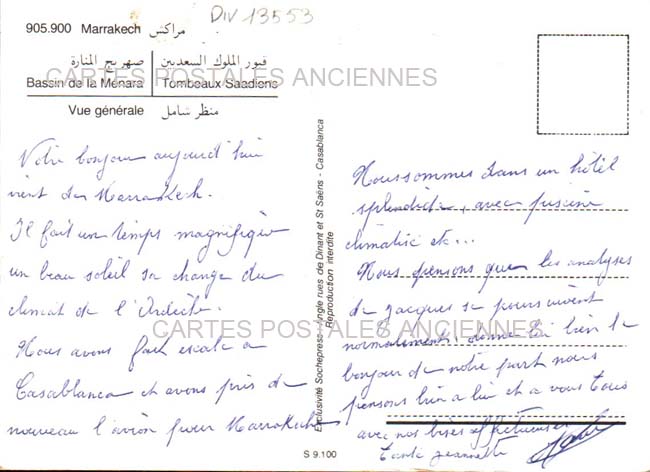 DIV 13553
905.900 Marrakech مراكش
صهريج المنارة
Bassin de la Ménara
قبور الملوك السعديين
Tombeaux Saadiens
Vue générale منظر شامل
CARTES POSTALES ANCIENNES
Votre bonjour aujourd'hui
vient de Marrakech.
Il fait un temps magnifique
un beau soleil sa change du
climat de l'Ardèche.
Nous avons fait escale a
Casablanca et avons pris de
nouveau l'avion pour Marrakech
Exclusivité Sochepress Angle rues de Dinant et St Saëns - Casablanca
Reproduction interdite
S 9.100
Nous sommes dans un hôtel
splendide, avec piscine
climatisé etc...
Nous pensons que les analyses
de Jacques se poursuivent
normalement, donne lui bien le
bonjour de notre part nous
pensons bien a lui et a vous tous
avec nos bises affectueuses
tante Jeannette
CARTES POSTALES ANCIENNES